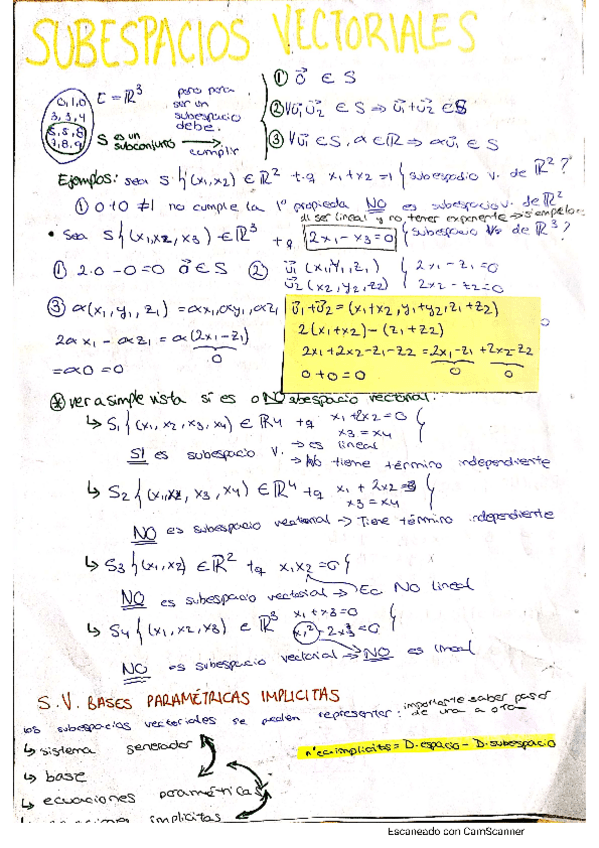 SUBESPACIOS VECTORIALES
0,1,0
3,3,4
5,5,8
7,8,9
E = ℝ³
para ser un subespacio debe.
S es un subconjunto → cumplir
① 0⃗ ∈ S
② ∀u⃗₁ u⃗₂ ∈ S ⇒ u⃗₁+u⃗₂ ∈ S
③ ∀u⃗₁ ∈ S, α ∈ ℝ ⇒ αu⃗₁ ∈ S
Ejemplos: sea S {(x₁,x₂) ∈ ℝ² t.q x₁+x₂=1 { subespacio v. de ℝ²?
① 0+0 ≠1 no cumple la 1º propiedad NO es subespacio v. de ℝ²
ser lineal y no tener exponente →
• Sea S {(x₁,x₂,x₃) ∈ ℝ³ tq 2x₁-x₃=0 { subespacio v. de ℝ³?
① 2·0-0=0 0⃗ ∈ S ② u⃗₁ (x₁,y₁,z₁) { 2x₁-z₁=0
u⃗₂ (x₂,y₂,z₂) 2x₂-z₂=0
③ α(x₁,y₁,z₁) = αx₁,αy₁,αz₁
2αx₁-αz₁ = α(2x₁-z₁)
0
=α0=0
u⃗₁+u⃗₂ = (x₁+x₂,y₁+y₂,z₁+z₂)
2(x₁+x₂)-(z₁+z₂)
2x₁+2x₂-z₁-z₂ = 2x₁-z₁ + 2x₂-z₂
0 0
0+0=0
⊛ ver a simple vista si es o NO subespacio vectorial:
↳ S₁ {(x₁,x₂,x₃,x₄) ∈ ℝ4 tq x₁+2x₂=0
x₃=x₄
SI es subespacio V. → es lineal
→ No tiene término independiente
↳ S₂ {(x₁,x₂,x₃,x₄) ∈ ℝ⁴ tq x₁+2x₂=3
x₃=x₄
NO es subespacio vectorial → Tiene término independiente
↳ S₃ {(x₁,x₂) ∈ ℝ² tq x₁x₂=0 {
NO es subespacio vectorial → Ec NO lineal
↳ S₄ {(x₁,x₂,x₃) ∈ ℝ³ x₁+x₃=0
x₁²-2x₃=0
NO es subespacio vectorial → NO es lineal
S.V. BASES PARAMÉTRICAS IMPLICITAS
los subespacios vectoriales se pueden representar: importante saber pasar de una a otra
↳ sistema generador
↳ base
↳ ecuaciones paramétricas
implicitas
nºec.implicitas = D.espacio - D.subespacio
Escaneado con CamScanner